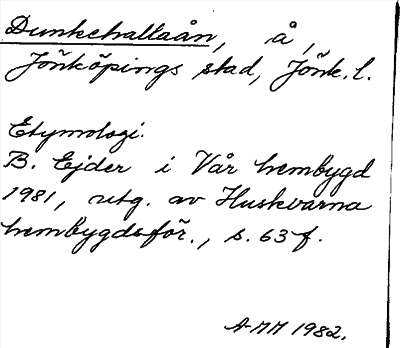 Dunkehallaån, å,
Jönköpings stad, Jönk. l.
Etymologi:
B. Ejder i Vår hembygd
1981, utg. av Huskvarna
hembygdsför., s. 63 f.
A-MH 1982.